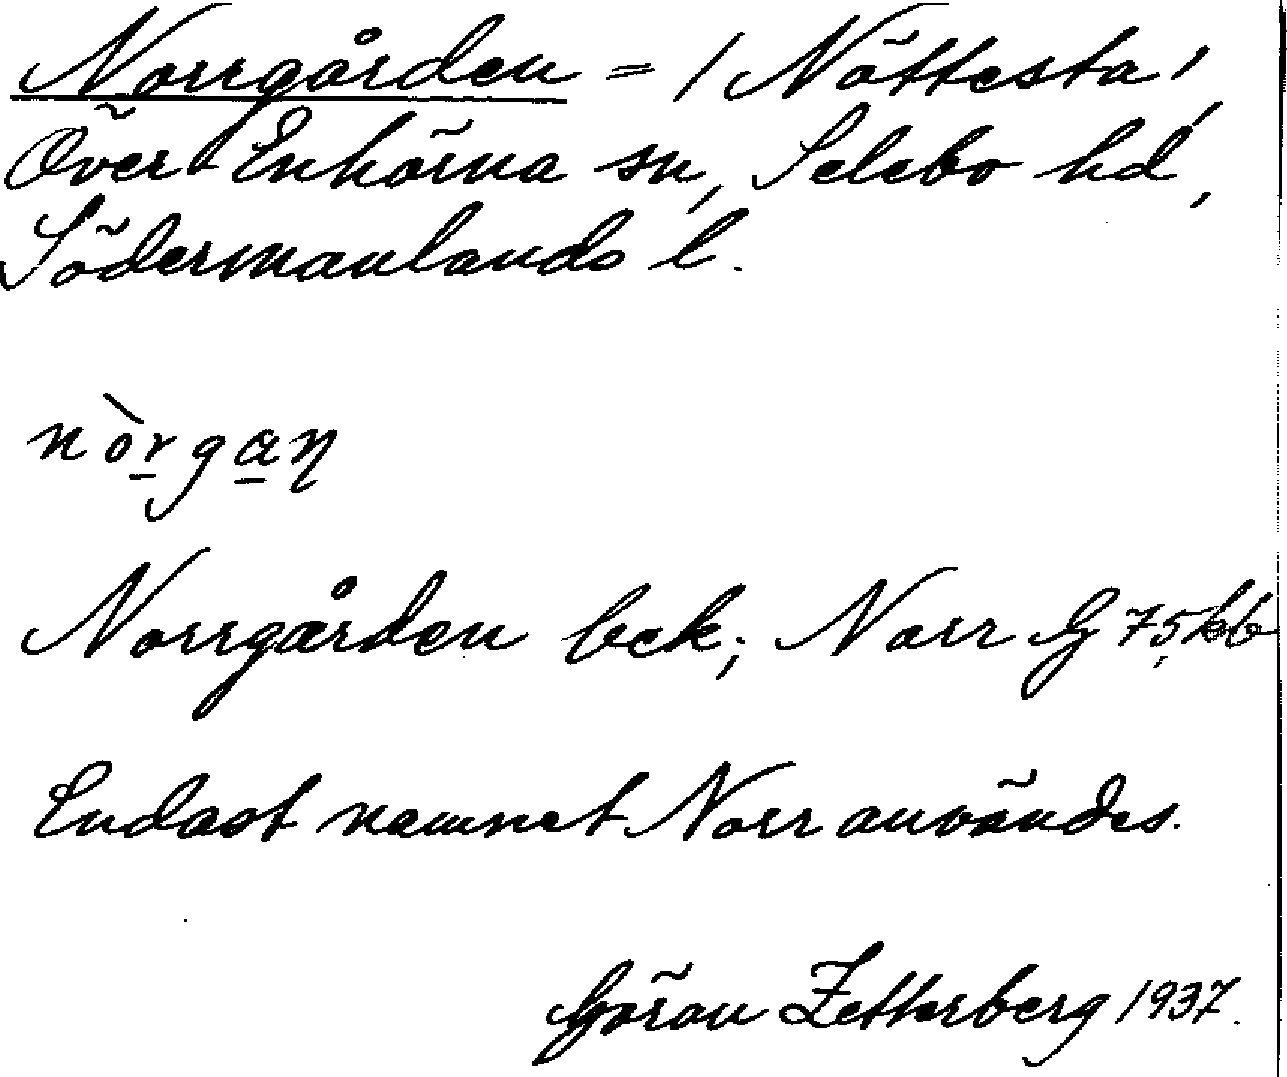 Norrgården = / Nöttesta /
Över Enhörna sn, Selebo hd,
Södermanlands l.
nòrgaꞑ
Norrgården bek; Norr G 75 kb
Endast namnet Norr användes.
Göran Zetterberg 1937.